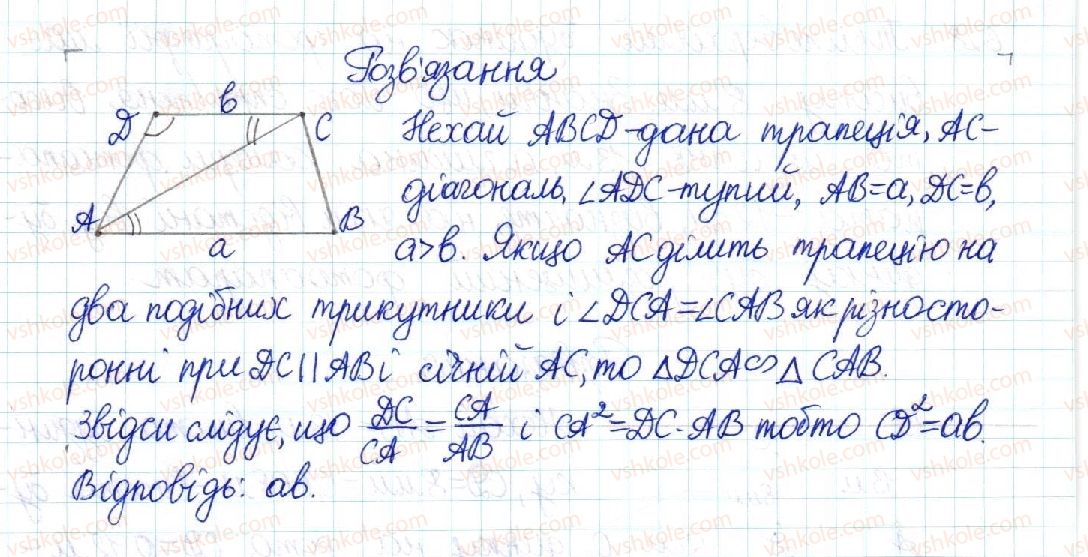 Розв'язання
D в C
A a B
Нехай ABCD-дана трапеція, AC-
діагональ, ∠ADC-тупий, AB=a, DC=в,
a>в. Якщо AC ділить трапецію на
два подібних трикутники і ∠DCA=∠CAB як різносто-
ронні при DC||AB і січній AC, то △DCA∽△CAB.
Звідси слідує, що DC/CA = CA/AB і CA²=DC·AB тобто CD²=aв.
Відповідь: aв.
vshkole.com